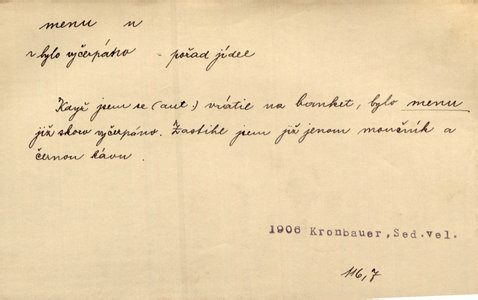 menu n
~ bylo vyčerpáno - pořad jídel
Když jsem se (aut.) vrátil na banket, bylo menu
již skoro vyčerpáno. Zastihl jsem již jenom moučník a
černou kávu.
1906 Kronbauer, Sed.vel.
116,7